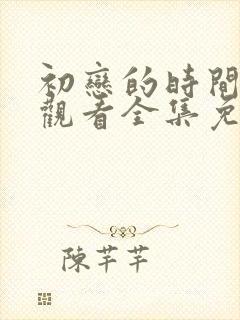 初戀的時間
觀看全集免
陳芊芊